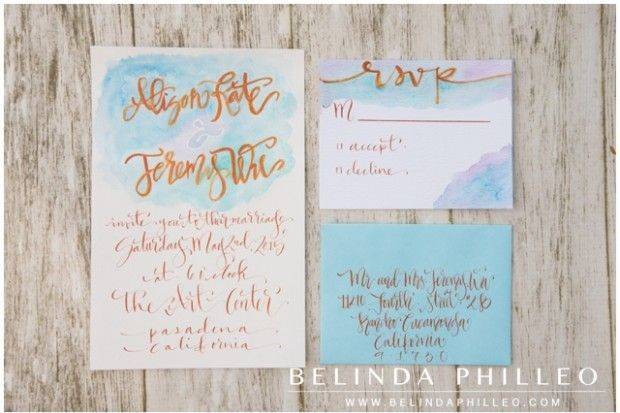 Alison Kate
&
Jeremy Wu
invite you to their marriage
Saturday, May 2nd, 2015
at 6 o'clock
The Art Center
pasadena
California
rsvp
M
accept
decline
Mr and Mrs Jeremy Wu
Fourth Street
Rancho Cucamonga
California
91730
BELINDA PHILLEO
WWW.BELINDAPHILLEO.COM